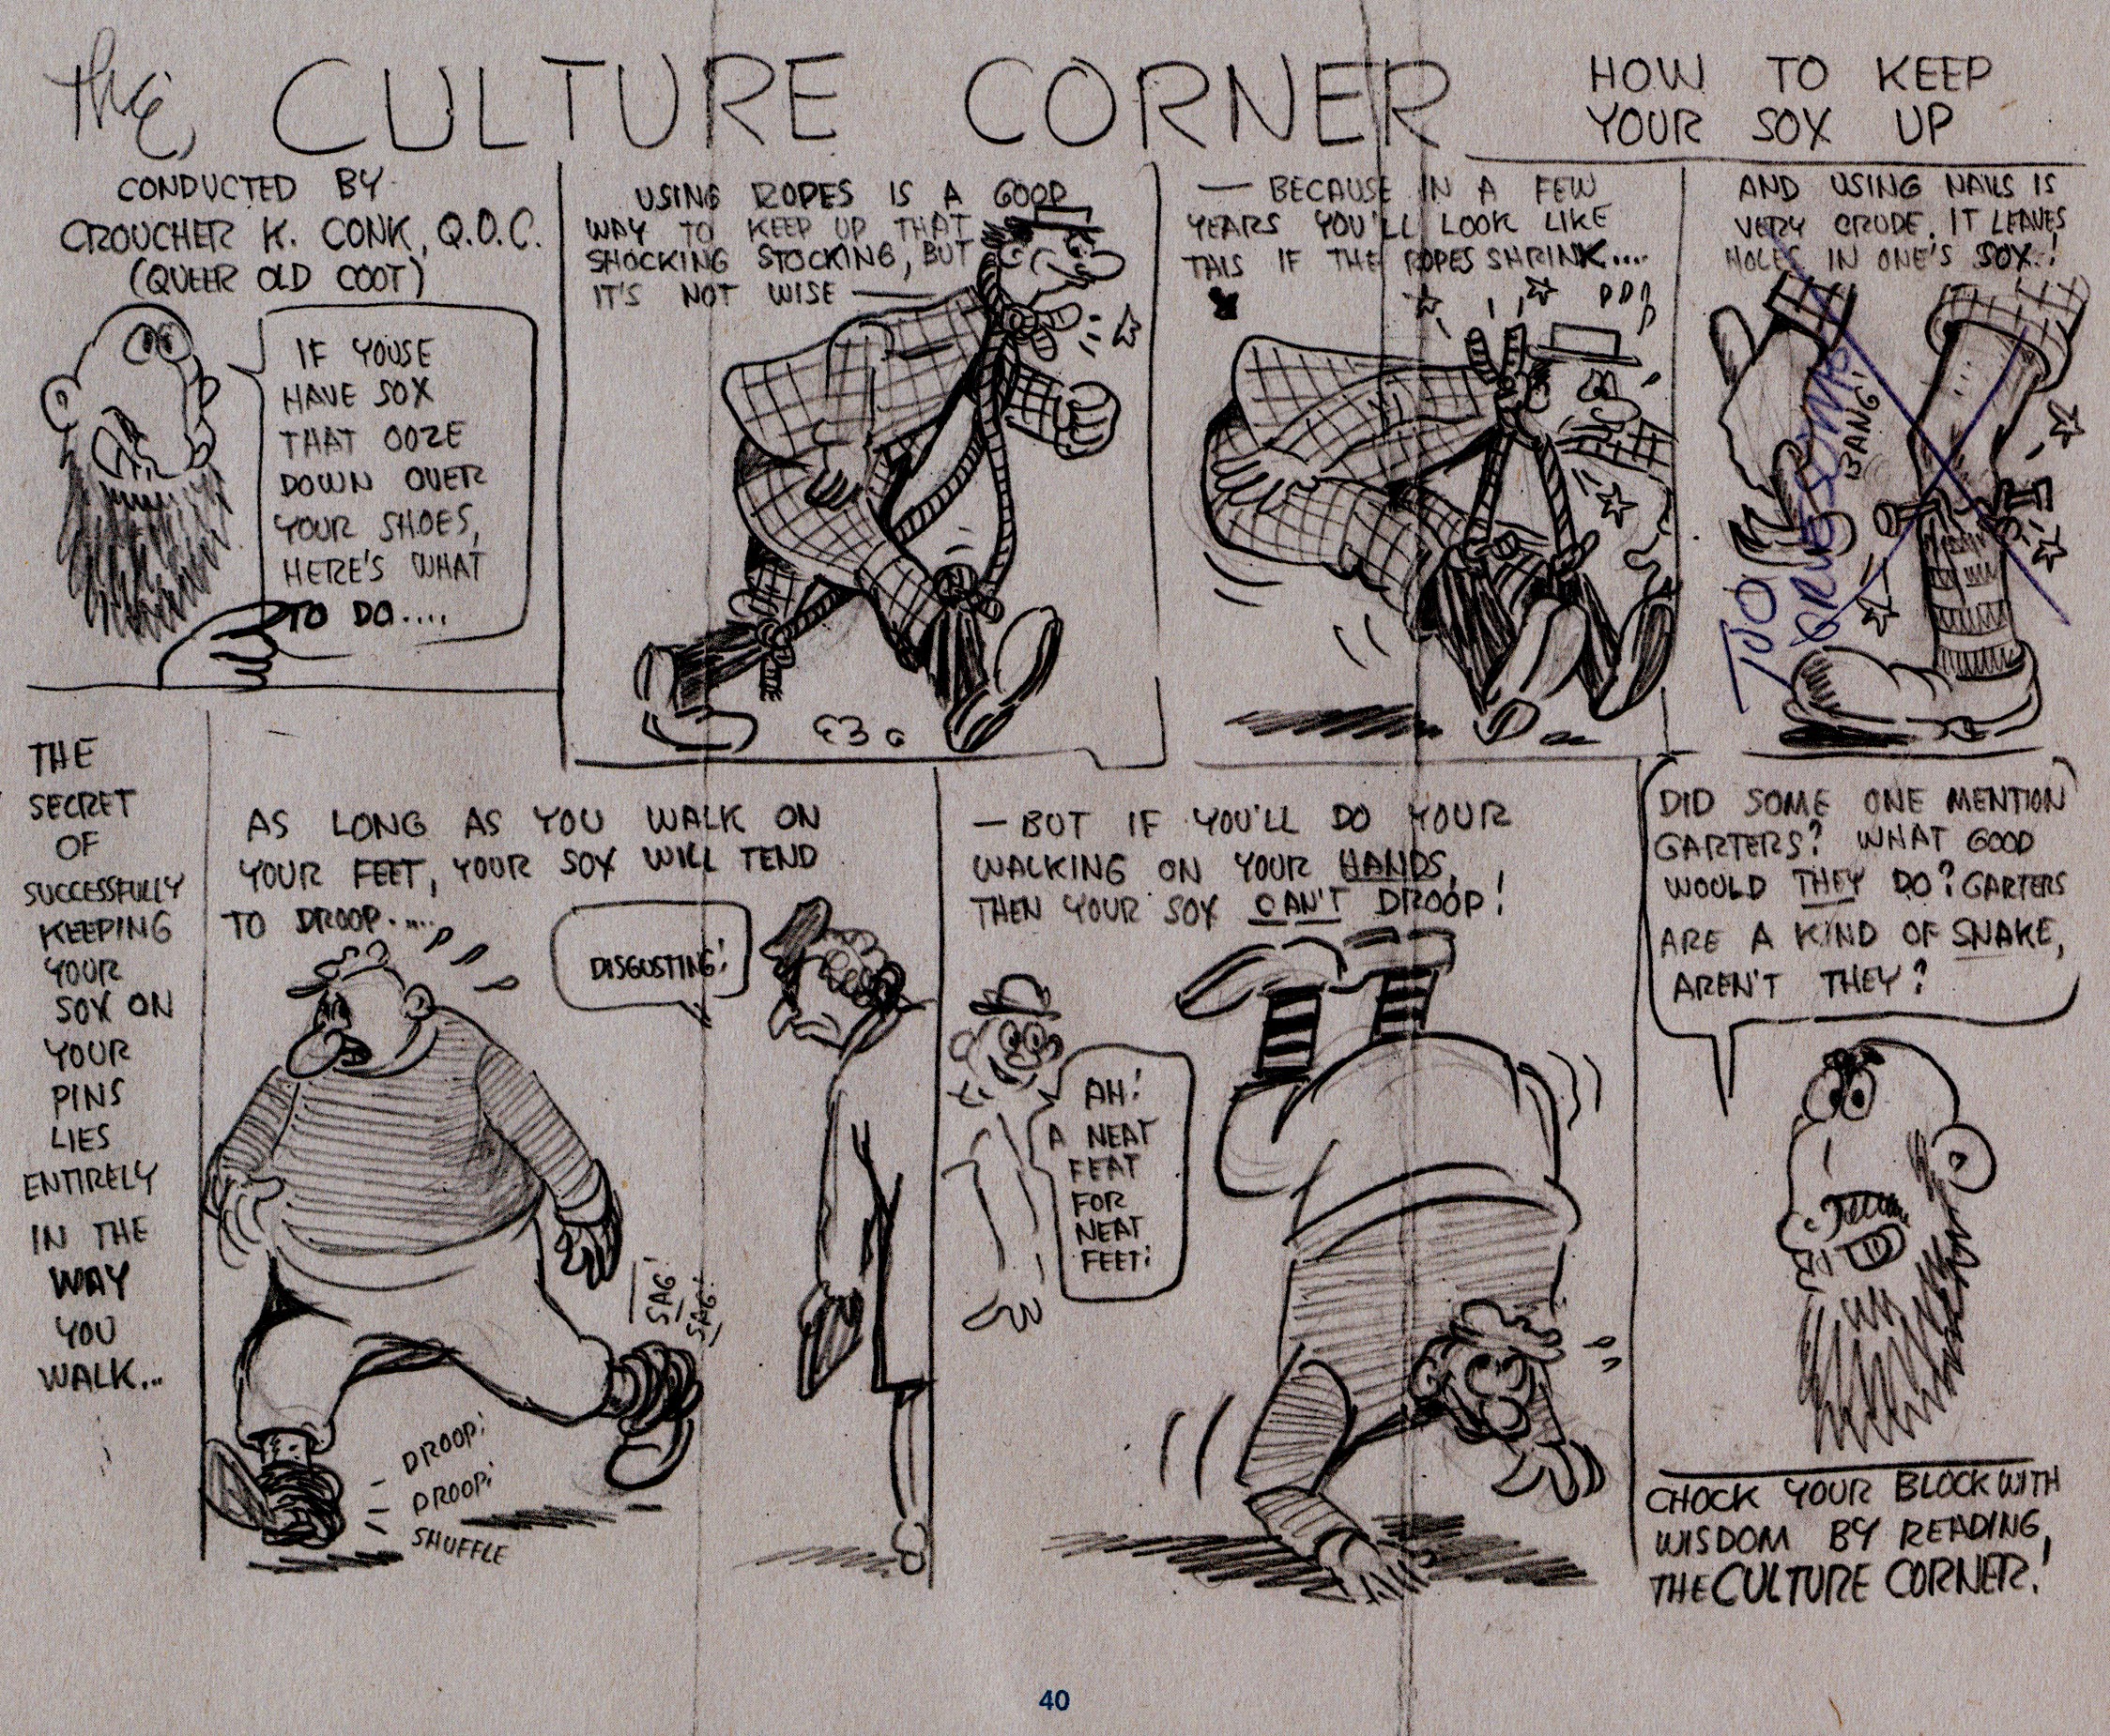 the CULTURE CORNER
HOW TO KEEP
YOUR SOX UP
CONDUCTED BY
CROUCHER K. CONK, Q.O.C.
(QUEER OLD COOT)
IF YOUSE
HAVE SOX
THAT OOZE
DOWN OVER
YOUR SHOES,
HERE'S WHAT
TO DO....
USING ROPES IS A GOOD
WAY TO KEEP UP THAT
SHOCKING STOCKING, BUT
IT'S NOT WISE —
— BECAUSE IN A FEW
YEARS YOU'LL LOOK LIKE
THIS IF THE ROPES SHRINK....
AND USING NAILS IS
VERY CRUDE. IT LEAVES
HOLES IN ONE'S SOX!
BANG!
TOO
THE
SECRET
OF
SUCCESSFULLY
KEEPING
YOUR
SOX ON
YOUR
PINS
LIES
ENTIRELY
IN THE
WAY
YOU
WALK...
AS LONG AS YOU WALK ON
YOUR FEET, YOUR SOX WILL TEND
TO DROOP.....
DISGUSTING!
SAG!
SAG!
DROOP!
DROOP!
SHUFFLE
— BUT IF YOU'LL DO YOUR
WALKING ON YOUR HANDS,
THEN YOUR SOX CAN'T DROOP!
AH!
A NEAT
FEAT
FOR
NEAT
FEET!
DID SOME ONE MENTION
GARTERS? WHAT GOOD
WOULD THEY DO? GARTERS
ARE A KIND OF SNAKE,
AREN'T THEY?
CHOCK YOUR BLOCK WITH
WISDOM BY READING
THE CULTURE CORNER!
40